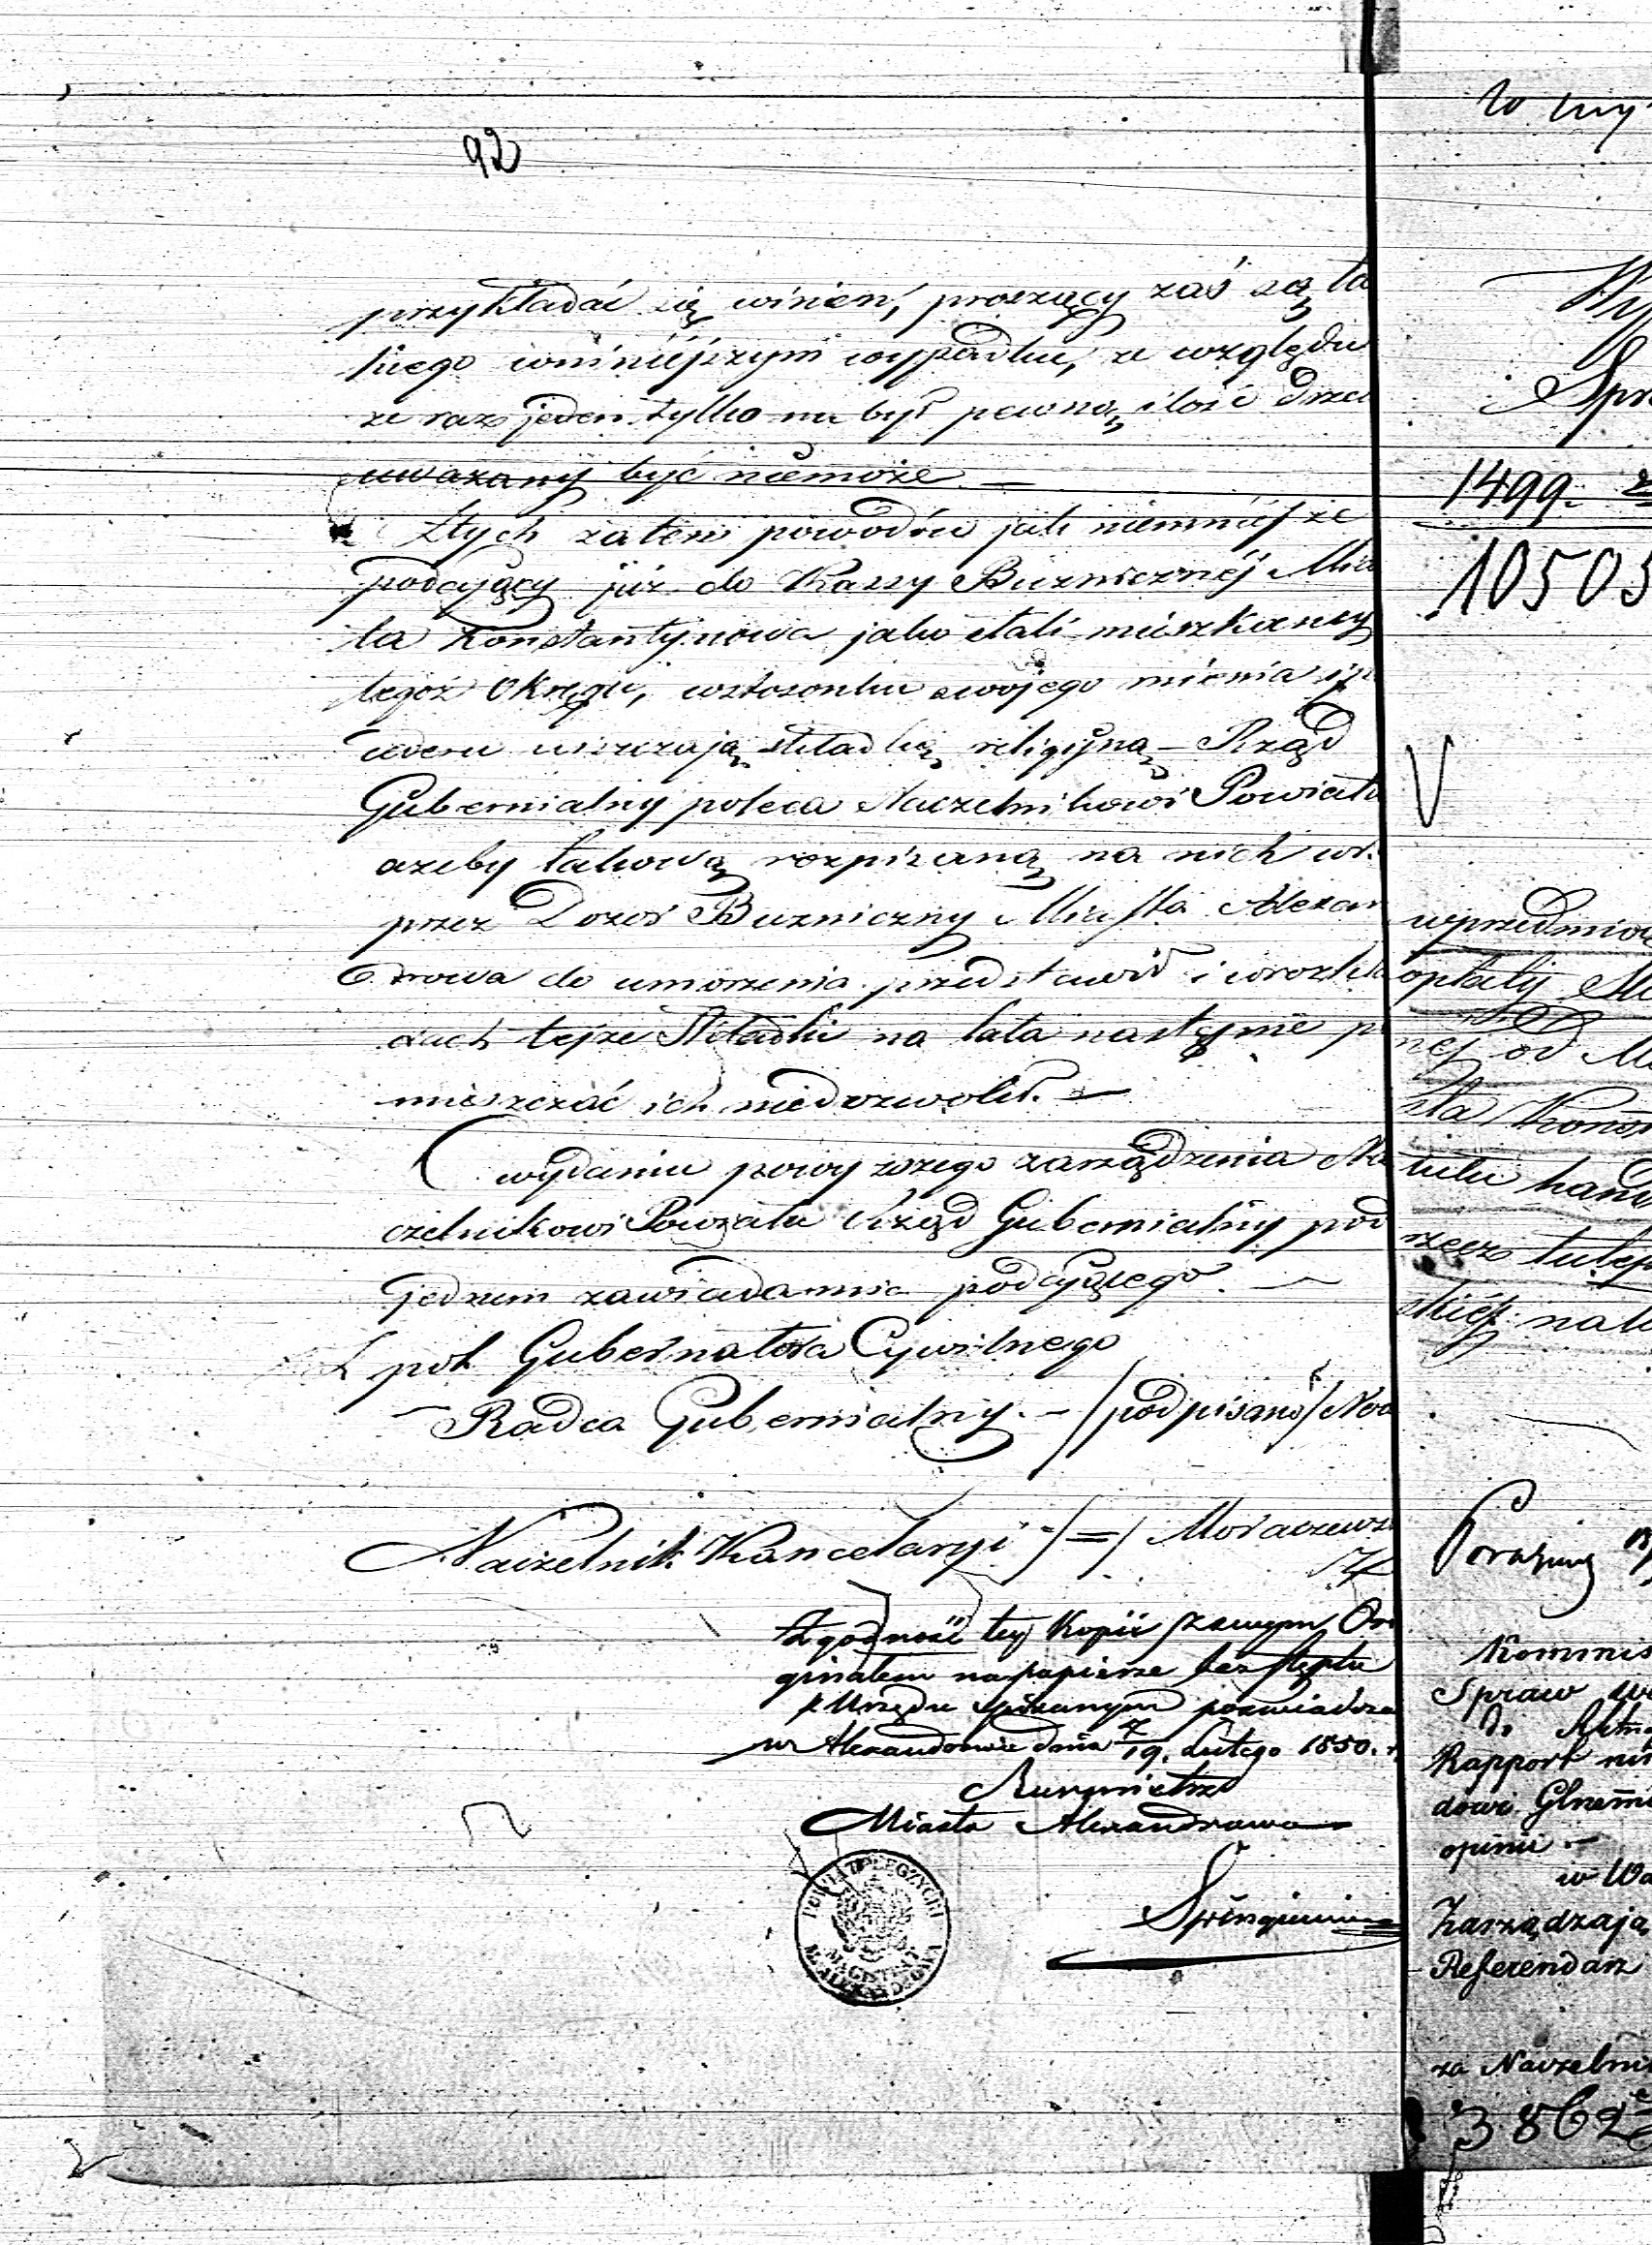 92
przykładać się winien, proszący zaś za ta
kiego wniniéjszym wypadku, ze względu
że raz jeden tylko na był pewną ilość drzew
uważany być niemoże —
Ztych zatem powodów jak niemniéj że
podcyący już do Kassy Bużnicznéj Mia
ta Konstantynowa jako stali mieszkańcy
tegoż Okręgu, wstosonku swojego mienia
uiszczają składkę religijną — Rząd
Gubernialny poleca Naczelnikowi Powiatu
ażeby takową rozpisaną na nich
przez Dozór Bużniczny Miasta Alexan
drowa do umorzenia przedstawił i wrozkła
dach tejże Składki na lata następne p
mieszczać ich niedozwolił. —
O wydaniu powyższego zarządzenia Na
czelnikowi Powiatu Rząd Gubernialny pod
jednem zawiadamia podcyącego. —
Gubernatora Cywilnego
Radca Gubernialny. — /podpisano/
Naczelnik Kancelaryi /=/ Moraczews
Zgodność tey Kopii zsamym Ory
ginałem na papierze bez stęplu
z Urzędu spisanym poswiadcza
w Alexandrowie dnia 7/19. Lutego 1850. r.
Burmistrz
Miasta Alexandrowa
POWIAT ŁĘCZYCKI
MAGISTRAT
Spr
1499.
10505
V
wprzedmio
opłaty
néj od
sta Konst
tułu hand
rzecz tutej
skiéj nale
Kommis
Spraw
Rapport
dowi Glnemu
opinii —
w Wa
Zarządzają
Referendarz
za Naczelni
3862